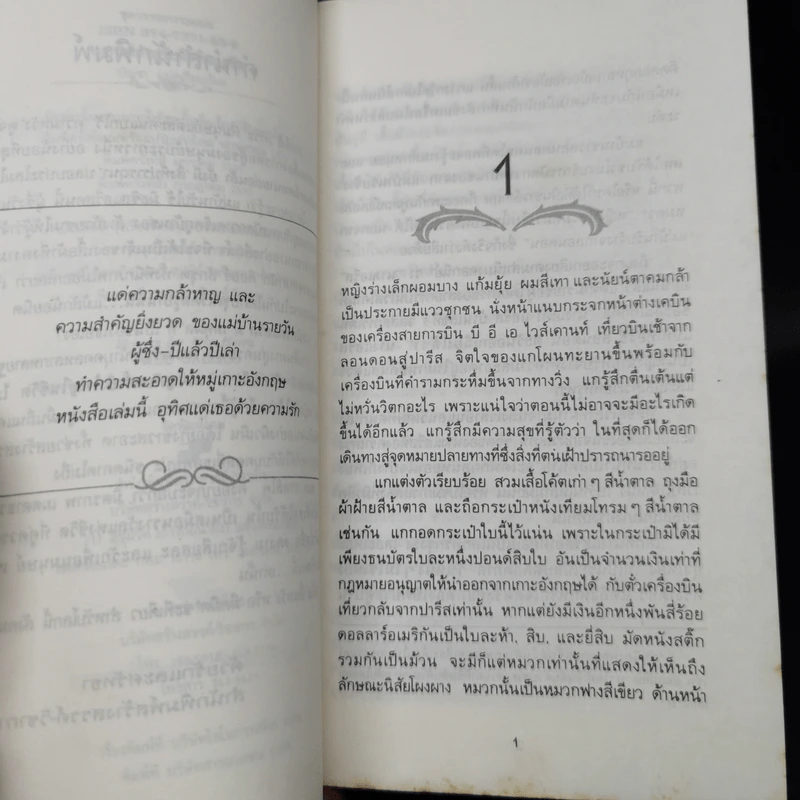 แด่ความกล้าหาญ และ
ความสำคัญยิ่งยวด ของแม่บ้านรายวัน
ผู้ซึ่ง-ปีแล้วปีเล่า
ทำความสะอาดให้หมู่เกาะอังกฤษ
หนังสือเล่มนี้ อุทิศแด่เธอด้วยความรัก
1
หญิงร่างเล็กผอมบาง แก้มยุ้ย ผมสีเทา และนัยน์ตาคมกล้า
เป็นประกายมีแววซุกซน นั่งหน้าแนบกระจกหน้าต่างเคบิน
ของเครื่องสายการบิน บี อี เอ ไวส์เคานท์ เที่ยวบินเช้าจาก
ลอนดอนสู่ปารีส จิตใจของแกโผนทะยานขึ้นพร้อมกับ
เครื่องบินที่คำรามกระหึ่มขึ้นจากทางวิ่ง แกรู้สึกตื่นเต้นแต่
ไม่หวั่นวิตกอะไร เพราะแน่ใจว่าตอนนี้ไม่อาจจะมีอะไรเกิด
ขึ้นได้อีกแล้ว แกรู้สึกมีความสุขที่รู้ตัวว่า ในที่สุดก็ได้ออก
เดินทางสู่จุดหมายปลายทางที่ซึ่งสิ่งที่ตนเฝ้าปรารถนารออยู่
แกแต่งตัวเรียบร้อย สวมเสื้อโค้ตเก่าๆ สีน้ำตาล ถุงมือ
ผ้าฝ้ายสีน้ำตาล และถือกระเป๋าหนังเทียมโทรมๆ สีน้ำตาล
เช่นกัน แกกอดกระเป๋าใบนี้ไว้แน่น เพราะในกระเป๋ามิได้มี
เพียงธนบัตรใบละหนึ่งปอนด์สิบใบ อันเป็นจำนวนเงินเท่าที่
กฎหมายอนุญาตให้นำออกจากเกาะอังกฤษได้ กับตั๋วเครื่องบิน
เที่ยวกลับจากปารีสเท่านั้น หากแต่ยังมีเงินอีกหนึ่งพันสี่ร้อย
ดอลลาร์อเมริกันเป็นใบละห้า, สิบ, และยี่สิบ มัดหนังสติ๊ก
รวมกันเป็นม้วน จะมีก็แต่หมวกเท่านั้นที่แสดงให้เห็นถึง
ลักษณะนิสัยโผงผาง หมวกนั้นเป็นหมวกฟางสีเขียว ด้านหน้า
1